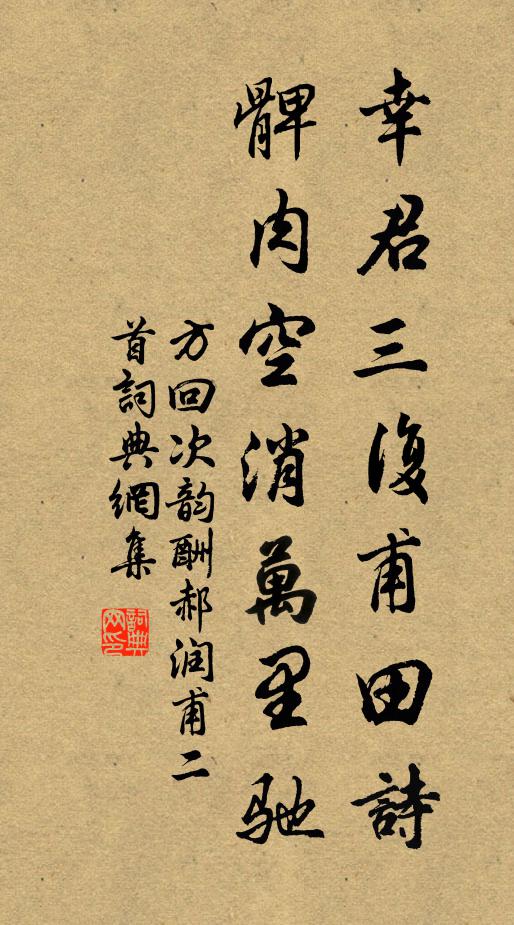 幸君三復甫田詩
髀肉空消萬里馳
方回次韵酬郝润甫二
首詞典網集
詞典
网印